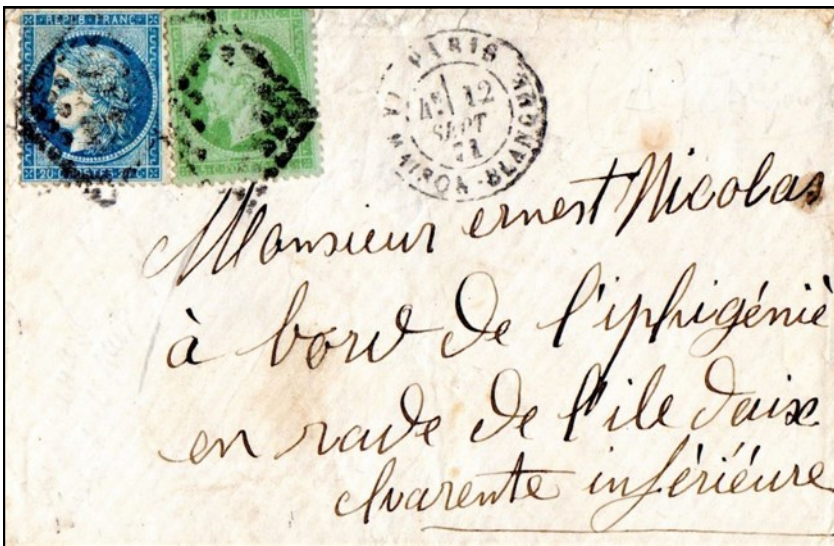 REPUB FRANC
20 C
FRANC
PARIS
12
SEPT
71
MAISON-BLANCHE
Monsieur ernest Nicolas
à bord de l'iphigénie
en rade de l'ile daix
charente inférieure